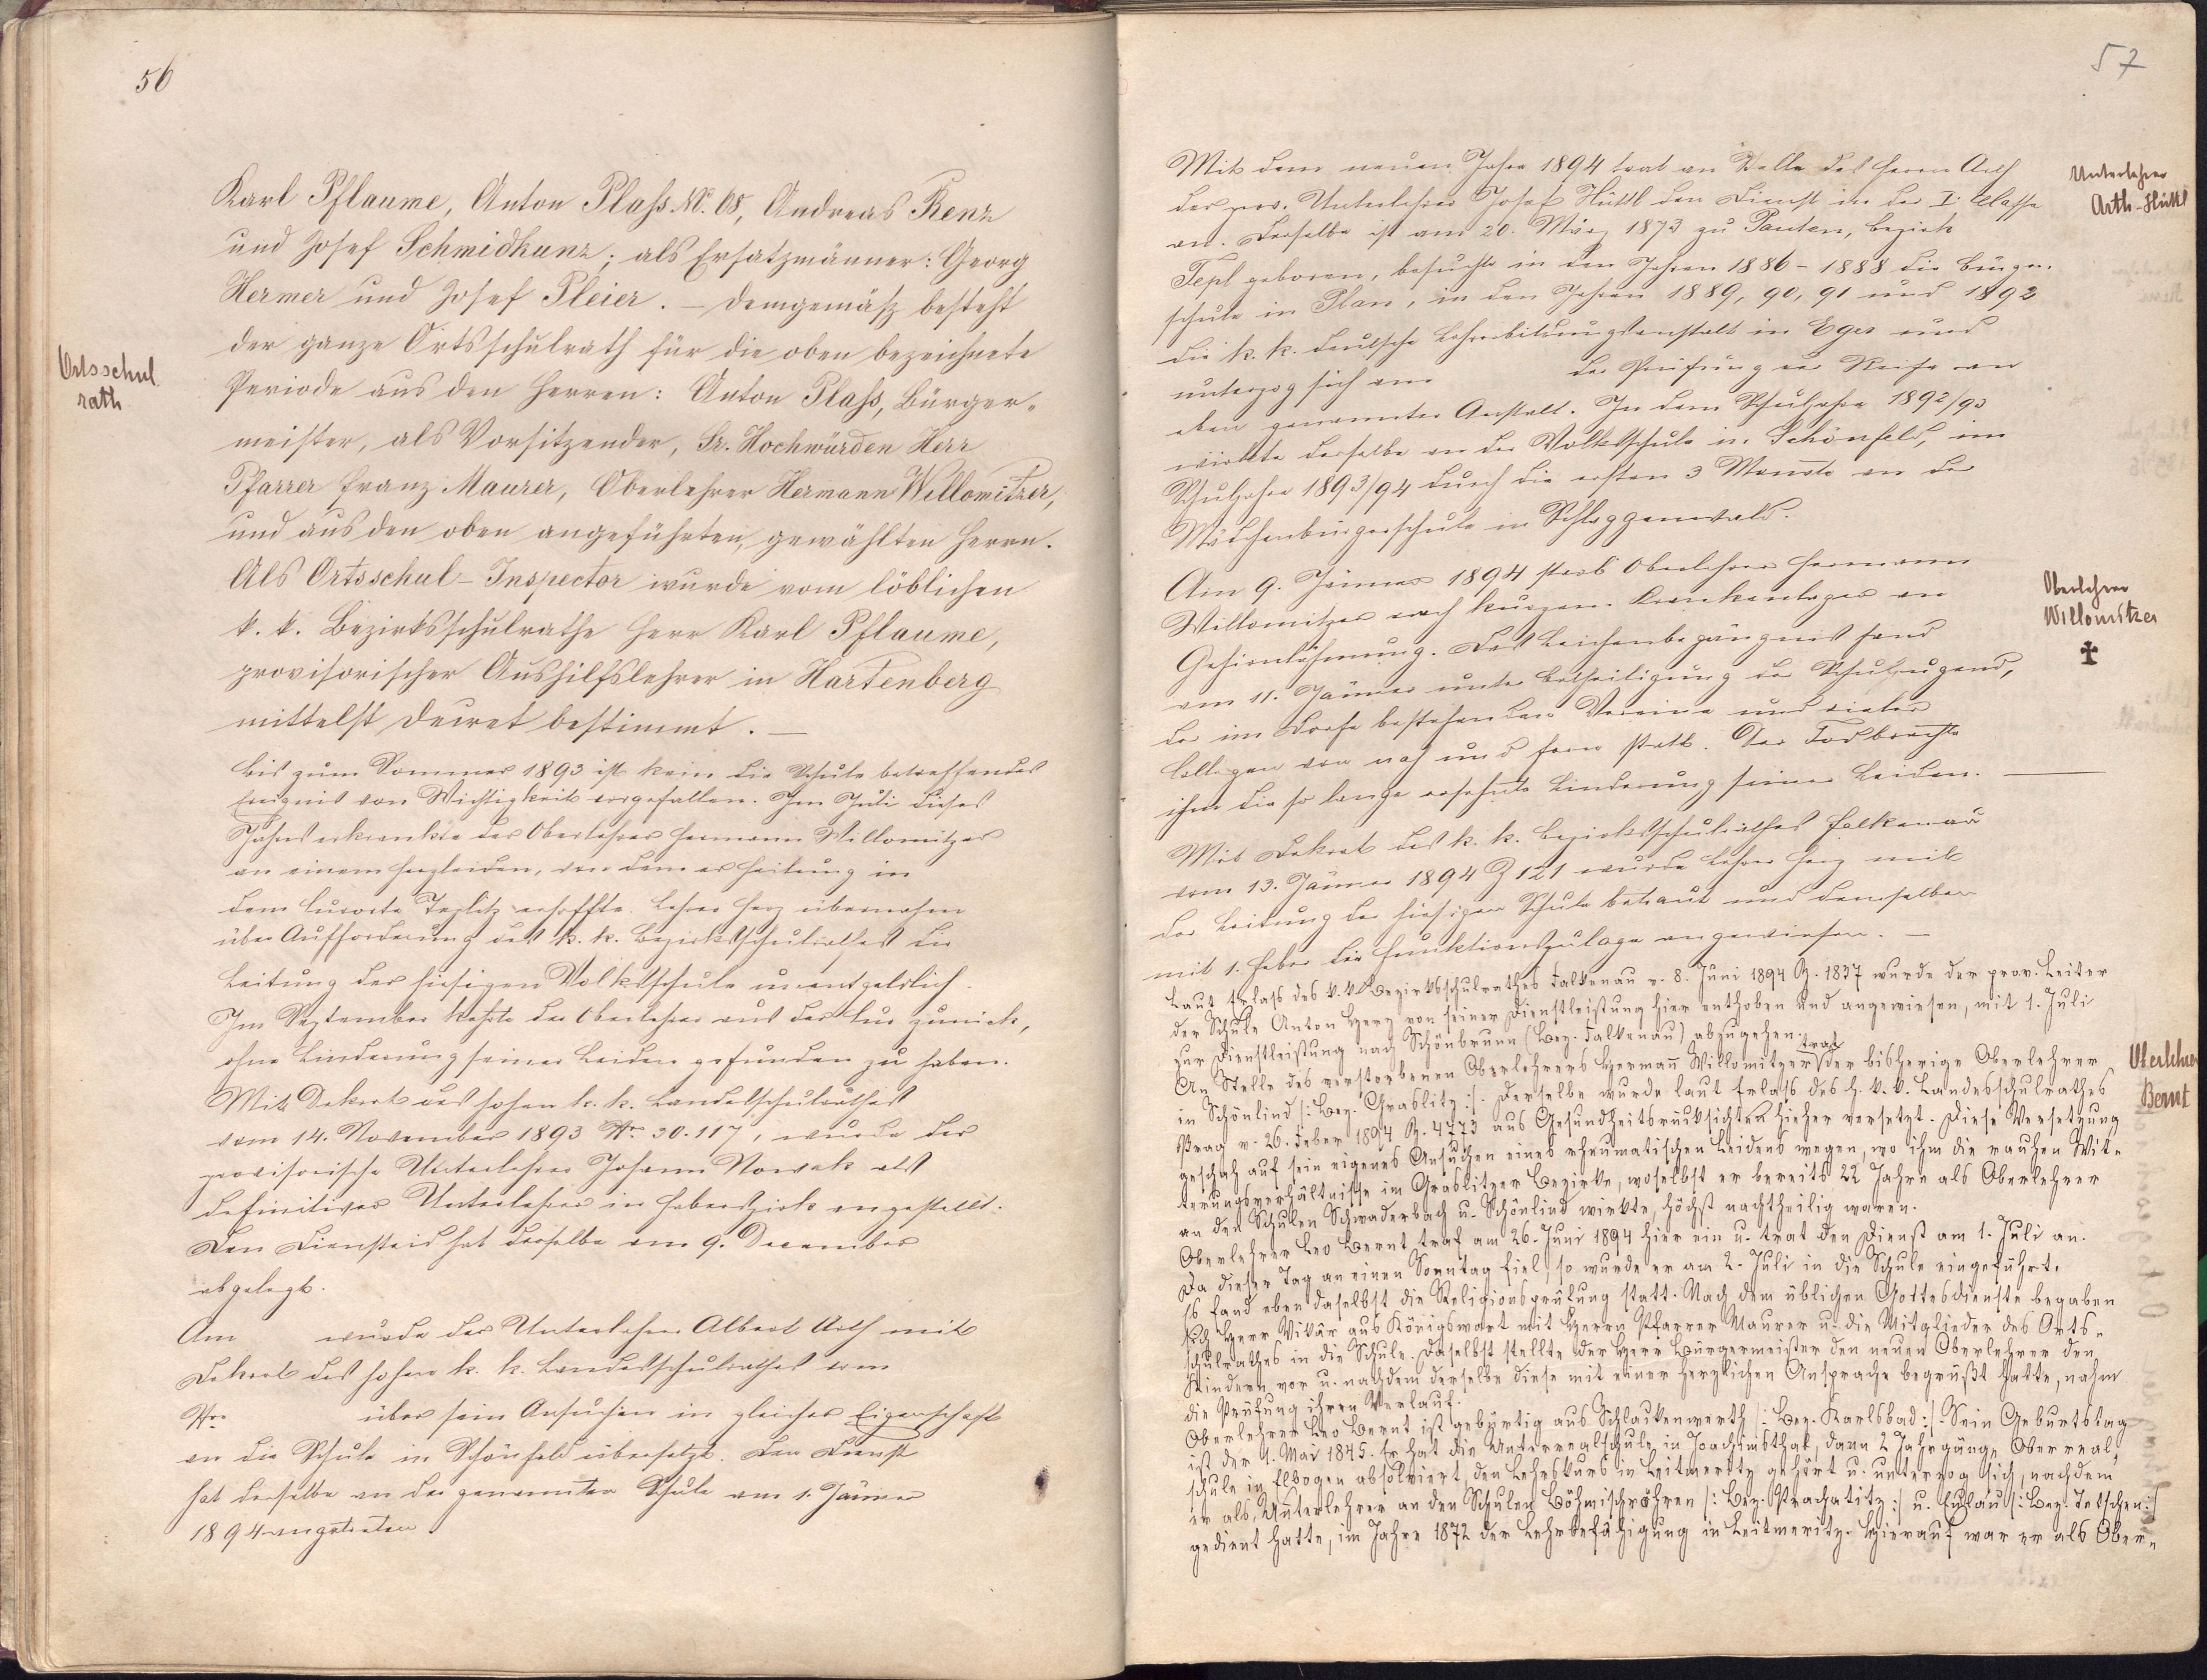 56
Karl Pflaume, Anton Plaß No. 68, Andreas Renz
und Josef Schmidkunz; als Ersatzmänner: Georg
Hermer und Josef Pleier. – Demgemäß besteht
der ganze Ortsschulrath für die oben bezeichnete
Ortsschul
rath
Periode aus den Herren: Anton Plaß, Bürger-
meister, als Vorsitzender, Sr. Hochwürden Herr
Pfarrer Franz Maurer, Oberlehrer Hermann Willomitzer,
und aus den oben angeführten, gewählten Herrn.
Als Ortsschul-Inspector wurde vom löblichen
k. k. Bezirksschulrathe Herr Karl Pflaume,
provisorischer Aushilfslehrer in Hartenberg
mittelst Decret bestimmt. –
Bis zum Sommer 1893 ist kein die Schule betreffendes
Ereignis von Wichtigkeit vorgefallen. Im Juli dieses
Jahres erkrankte der Oberlehrer Hermann Willomitzer
an einem Herzleiden, von dem er Heilung in
dem Curorte Teplitz erhoffte. Lehrer Herz übernahm
über Aufforderung des k. k. Bezirksschulrathes die
Leitung der hiesigen Volksschule unentgeltlich.
Im September kehrte der Oberlehrer aus der Cur zurück,
ohne Linderung seiner Leiden gefunden zu haben.
Mit Dekret des hohen k. k. Landesschulrathes
vom 14. November 1893 Nr. 30.117, wurde der
provisorische Unterlehrer Johann Nowak als
definitiver Unterlehrer in Haberspirk angestellt.
Den Diensteid hat derselbe am 9. December
abgelegt.
Am wurde der Unterlehrer Albert Arth mit
Dekret des hohen k. k. Landesschulrathes vom
Nr. über sein Ansuchen in gleicher Eigenschaft
an die Schule in Schönfeld übersetzt. Den Dienst
hat derselbe an der genannten Schule am 1. Jänner
1894 angetreten.
57
Mit dem neuen Jahre 1894 trat an Stelle des Herrn Arth
Unterlehrer
Arth-Hüttl
der prov. Unterlehrer Josef Hüttl den Dienst in der I. Classe
an. Derselbe ist am 20. März 1873 zu Pauten, Bezirk
Tepl geboren, besuchte in den Jahren 1886-1888 die Bürger-
schule in Plan, in den Jahren 1889, 90, 91 und 1892
die k. k. deutsche Lehrerbildungsanstalt in Eger und
unterzog sich am der Prüfung der Reife an
eben genannter Anstalt. In dem Schuljahre 1892/93
wirkte derselbe an der Volksschule in Schönfeld, im
Schuljahre 1893/94 durch die ersten 3 Monate an der
Mädchenbürgerschule in Schlaggenwald.
Am 9. Jänner 1894 starb Oberlehrer Hermann
Oberlehrer
Willomitzer
✝
Willomitzer nach kurzem Krankenlager an
Gehirnlähmung. Das Leichenbegängnis fand
am 11. Jänner unter Betheiligung der Schuljugend,
der im Dorfe bestehenden Vereine und vieler
Collegen von nah und fern statt. Der Tod brachte
ihm die so lange ersehnte Linderung seiner Leiden. –
Mit Dekret des k. k. Bezirksschulrathes Falkenau
vom 13. Jänner 1894 Z 121 wurde Lehrer Herz mit
der Leitung der hiesigen Schule betraut und demselben
mit 1. Feber die Funktionszulage angewiesen. –
Laut Erlass des k. k. Bezirksschulrathes Falkenau v. 8. Juni 1894 Z. 1837 wurde der prov. Leiter
der Schule Anton Herz von seiner Dienstleistung hier enthoben und angewiesen, mit 1. Juli
zur Dienstleistung nach Schönbrunn (Bez. Falkenau) abzugehen.
An Stelle des verstorbenen Oberlehrers Hermañ Willomitzer trat der bisherige Oberlehrer
Oberlehrer
Bernt
in Schönlind /: Bez. Graslitz :/. Derselbe wurde laut Erlaß des h. k. k. Landesschulrathes
Prag v. 26. Feber 1894 Z. 4773 aus Gesundheitsrücksichten hieher versetzt. Diese Versetzung
geschah auf sein eigenes Ansuchen eines rheumatischen Leidens wegen, wo ihm die rauhen Wit-
terungsverhältnisse im Graslitzer Bezirke, woselbst er bereits 22 Jahre als Oberlehrer
an den Schulen Schwaderbach u. Schönlind wirkte, höchst nachtheilig waren.
Oberlehrer Leo Bernt traf am 26. Juni 1894 hier ein u. trat den Dienst am 1. Juli an.
Da dieser Tag an einen Sonntag fiel, so wurde er am 2. Juli in die Schule eingeführt.
Es fand eben daselbst die Religionsprüfung statt. Nach dem üblichen Gottesdienste begaben
sich Herr Vikär aus Königswart mit Herrn Pfarrer Maurer u. die Mitglieder des Orts-
schulrathes in die Schule. Daselbst stellte der Herr Bürgermeister den neuen Oberlehrer den
Kindern vor u. nachdem derselbe diese mit einer herzlichen Ansprache begrüßt hatte, nahm
die Prüfung ihren Verlauf.
Oberlehrer Leo Bernt ist gebürtig aus Schlackenwerth /: Bez. Karlsbad :/. Sein Geburtstag
ist der 1. Mai 1845. Er hat die Unterrealschule in Joachimsthal, dann 2 Jahrgänge Oberreal-
schule in Elbogen absolviert, den Lehrkurs in Leitmeritz gehört u. unterzog sich, nachdem
er als Unterlehrer an den Schulen Böhmischröhren /: Bez. Prachatitz :/ u. Eulau /: Bez. Tetschen :/
gedient hatte, im Jahre 1872 der Lehrbefähigung in Leitmeritz. Hierauf war er als Ober-